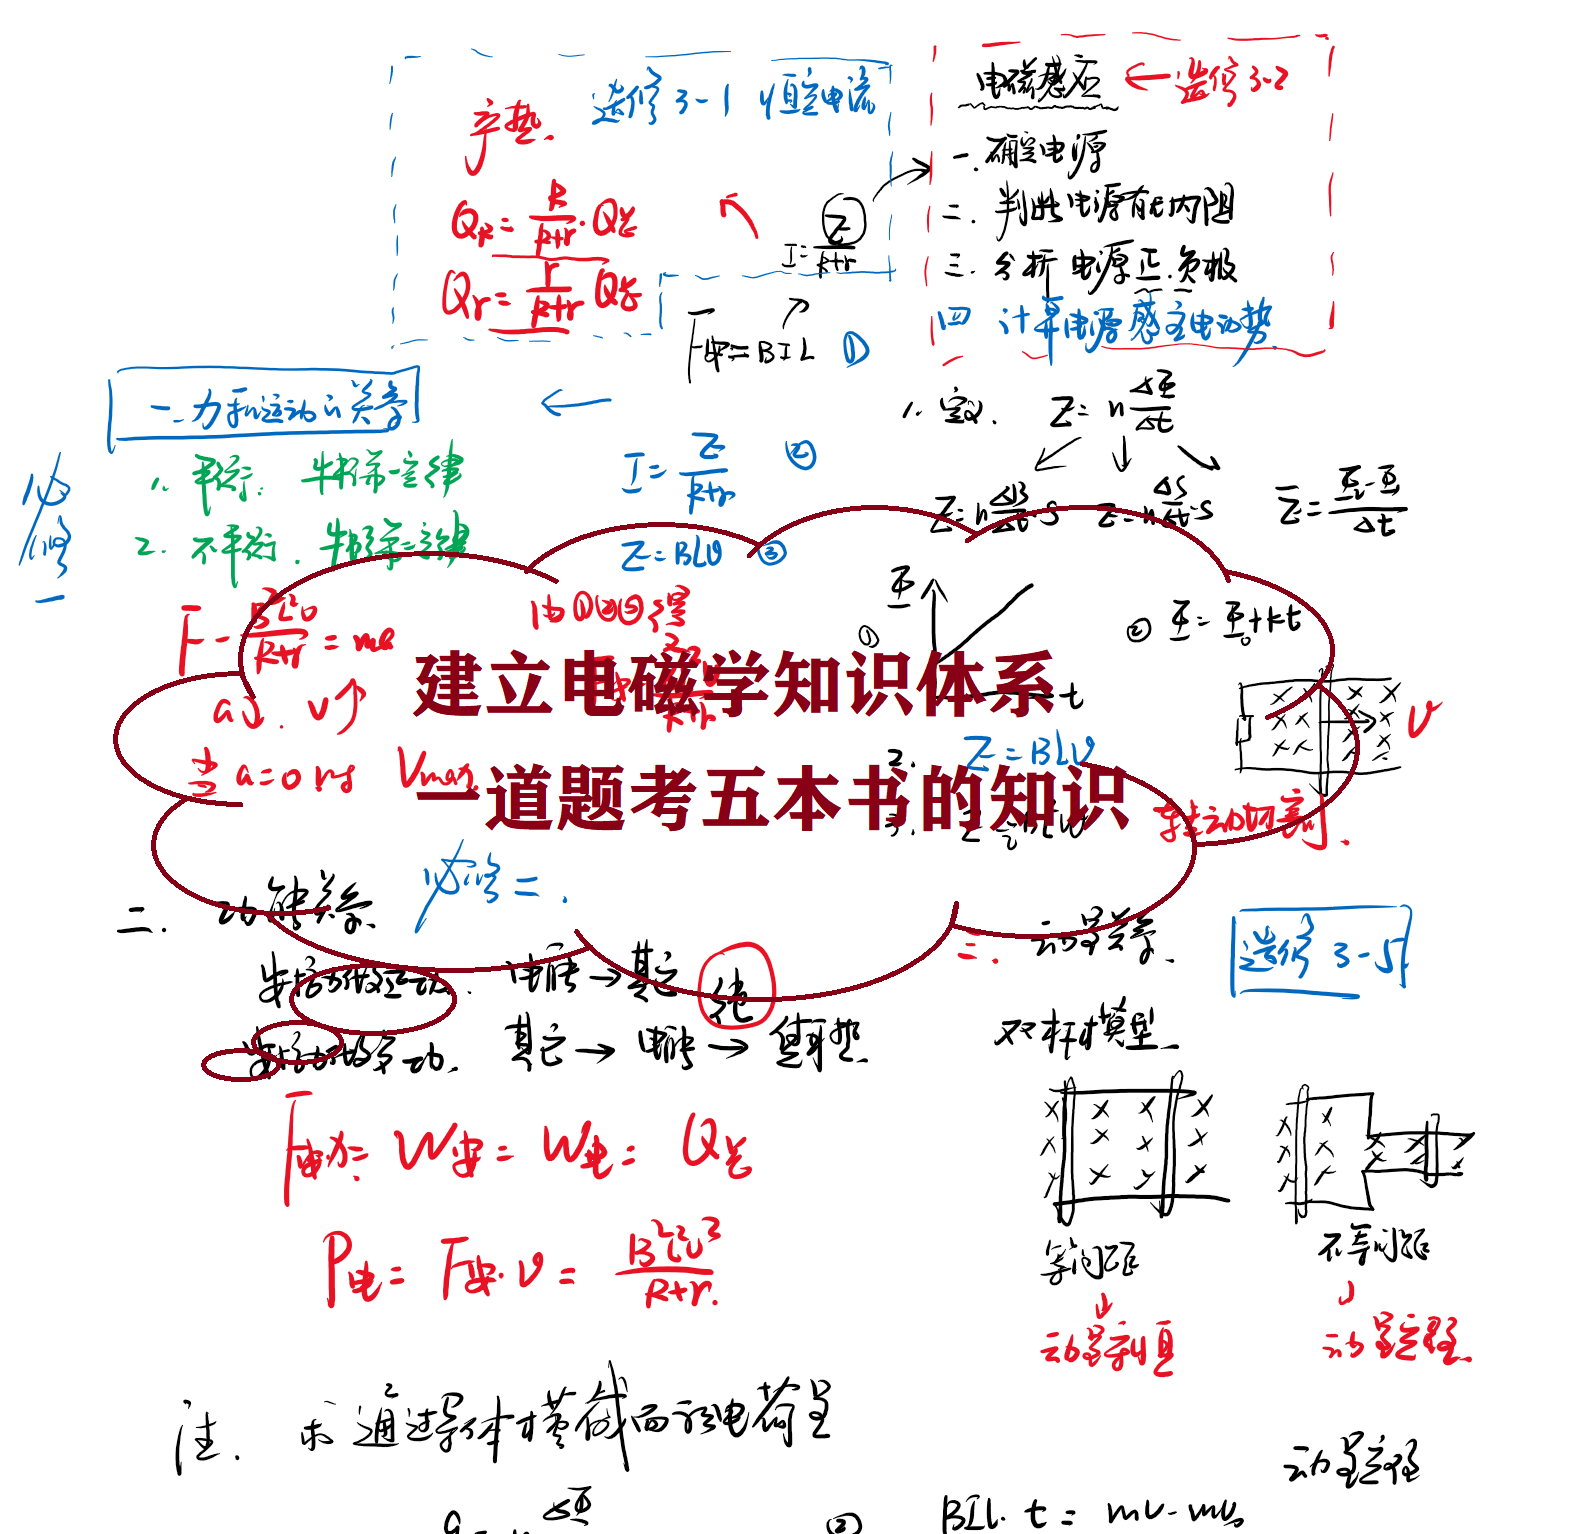 选修3-1 恒定电流
产热.
Q_R = R/(R+r) · Q总
Q_r = r/(R+r) Q总
I = E/(R+r)
F安 = BIL ①
电磁感应 ← 选修3-2
一. 确定电源
二. 判断电源有无内阻
三. 分析 电源正.负极
四 计算电源感应电动势
一. 力和运动的关系
必修一
1. 平衡. 牛顿第一定律
2. 不平衡. 牛顿第二定律
I = E/(R+r) ②
E = BLv ③
由①②③得
F - B²L²v/(R+r) = ma
a↓. v↑
当 a=0时 Vmax
1. 定义. E = n ΔΦ/Δt
E = n ΔB/Δt · S
E = n ΔS/Δt · S
Ē = (Φ₂-Φ₁)/Δt
①
Φ
t
② Φ = Φ₀ + kt
2. E = BLv
v
3.
转动切割.
建立电磁学知识体系
一道题考五本书的知识
二. 功能关系. 必修二.
安培力做正功. 电能 → 其它
纯
安培力做负功. 其它 → 电能 → 焦耳热.
W安 = W电 = Q总
P电 = F安·v = B²L²v²/(R+r).
三. 动量关系. 选修 3-5.
双杆模型.
等间距
不等间距
动量守恒
动量定理.
注. 求通过导体横截面积电荷量
动量定理
ΔΦ
②
BIL· t = mv - mv₀